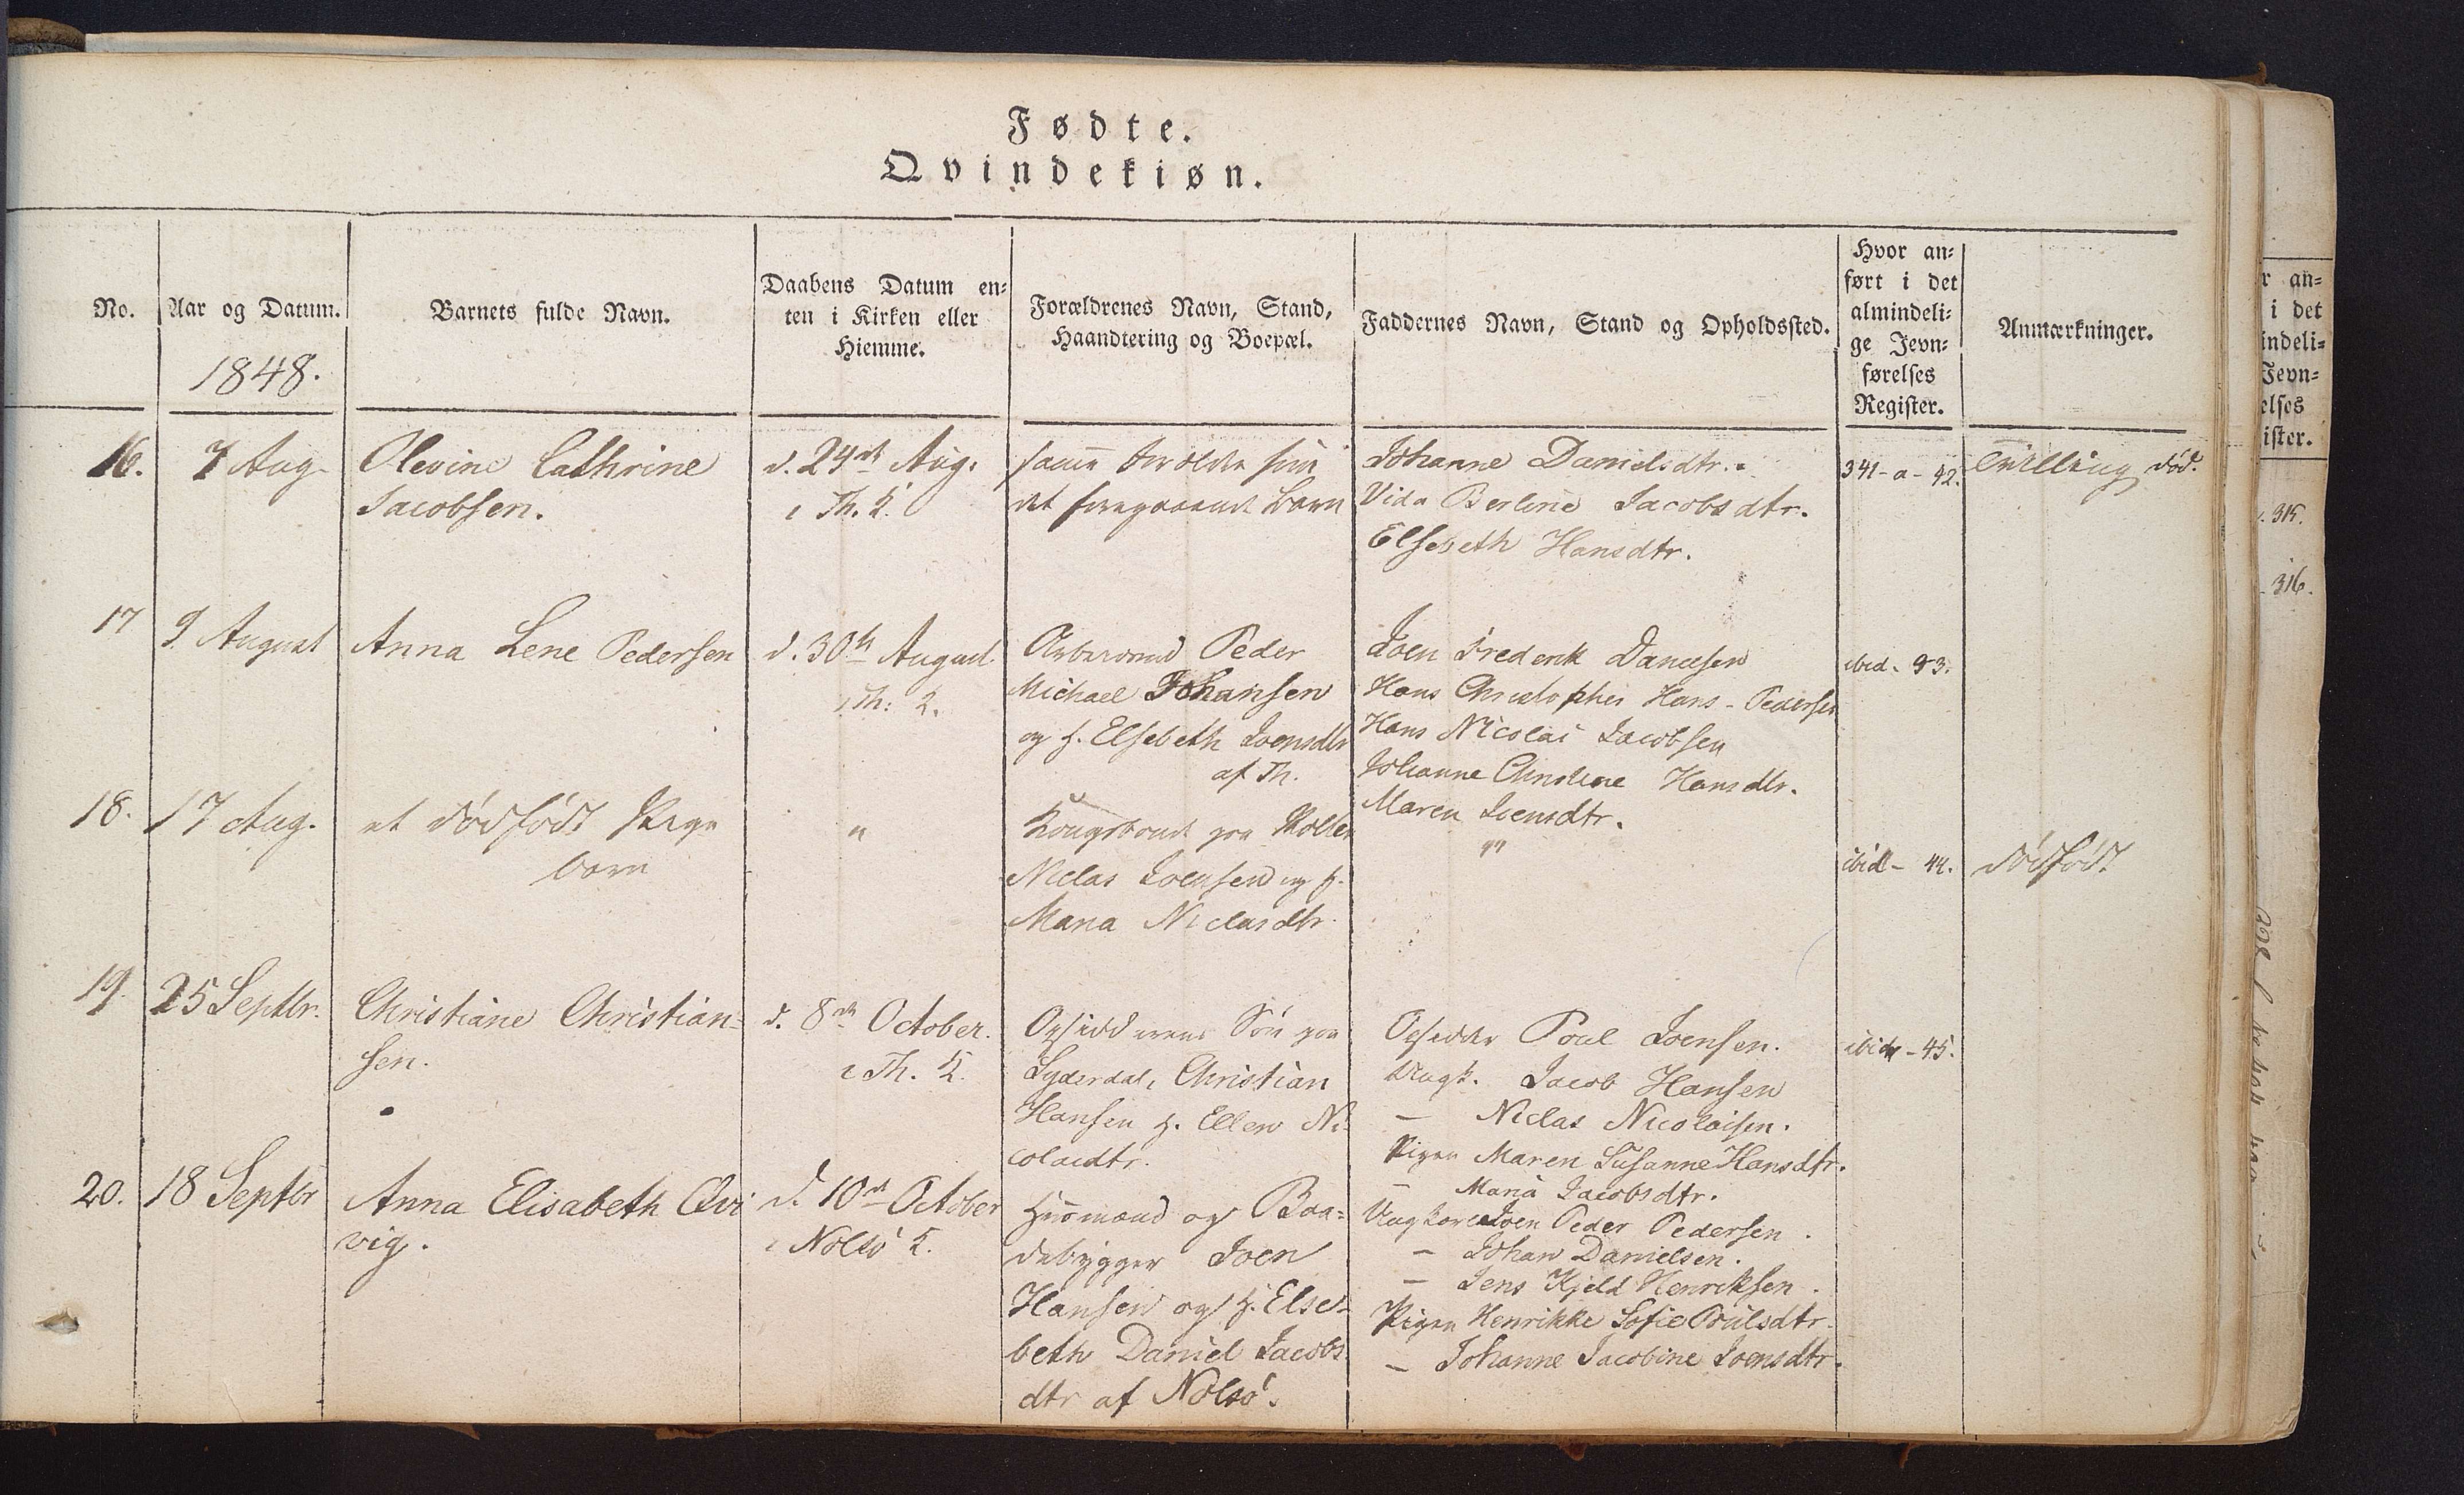 Fødte.
Qvindekiøn.
No.
Aar og Datum.
1848.
Barnets fulde Navn.
Daabens Datum en=
ten i Kirken eller
Hiemme.
Forældrenes Navn, Stand,
Haandtering og Boepæl.
Faddernes Navn, Stand og Opholdssted.
Hvor an=
ført i det
almindeli=
ge Jevn=
førelses
Register.
Anmærkninger.
16.
7 Aug.
Olevine Cathrine
Jacobsen.
d. 24de Aug.
i Th. K.
samme Forældre som
det foregaaende Barn
Johanne Danielsdtr.
Vida Berline Jacobsdtr.
Elsebeth Hansdtr.
341-a-42.
Tvilling død.
17
9 August
Anna Lene Pedersen
d. 30te August
i Th: K.
Peder
Michael Johansen
og H. Elsebeth Joensdtr
af Th.
Joen Frederik Danielsen
Hans Christopher Hans-Pedersen
Hans Nicolai Jacobsen
Johanne Christine Hansdtr.
Maren Joensdtr.
ibid - 43.
18.
17 Aug.
et dödfödt Pige
barn
"
Kongsbonde paa
Niclas Joensen og H.
Maria Niclasdtr.
"
ibid - 44.
dödfödt
19.
25 Septbr.
Christiane Christian=
sen.
d. 8de October.
i Th. K.
Opsidderens Sön paa
Syderdal, Christian
Hansen H. Ellen Ni-
colaidtr.
Opsidder Poul Joensen.
Ungk. Jacob Hansen
— Niclas Nicolaisen.
Pigen Maren Susanne Hansdtr.
— Maria Jacobsdtr.
ibid - 45.
20.
18 Septbr
Anna Elisabeth Qvi
vig.
d. 10de October
i Nolsö K.
Huusmand og Baa=
debygger Joen
Hansen og H. Else-
beth Daniel Jacobs
dtr af Nolsö.
Ungkarl Joen Peder Pedersen.
— Johan Danielsen.
— Jens Kjeld Henriksen.
Pigen Henrikke Sofie Poulsdtr.
— Johanne Jacobine Joensdtr.
r an=
i det
indeli=
Jevn=
elses
ister.
315.
316.